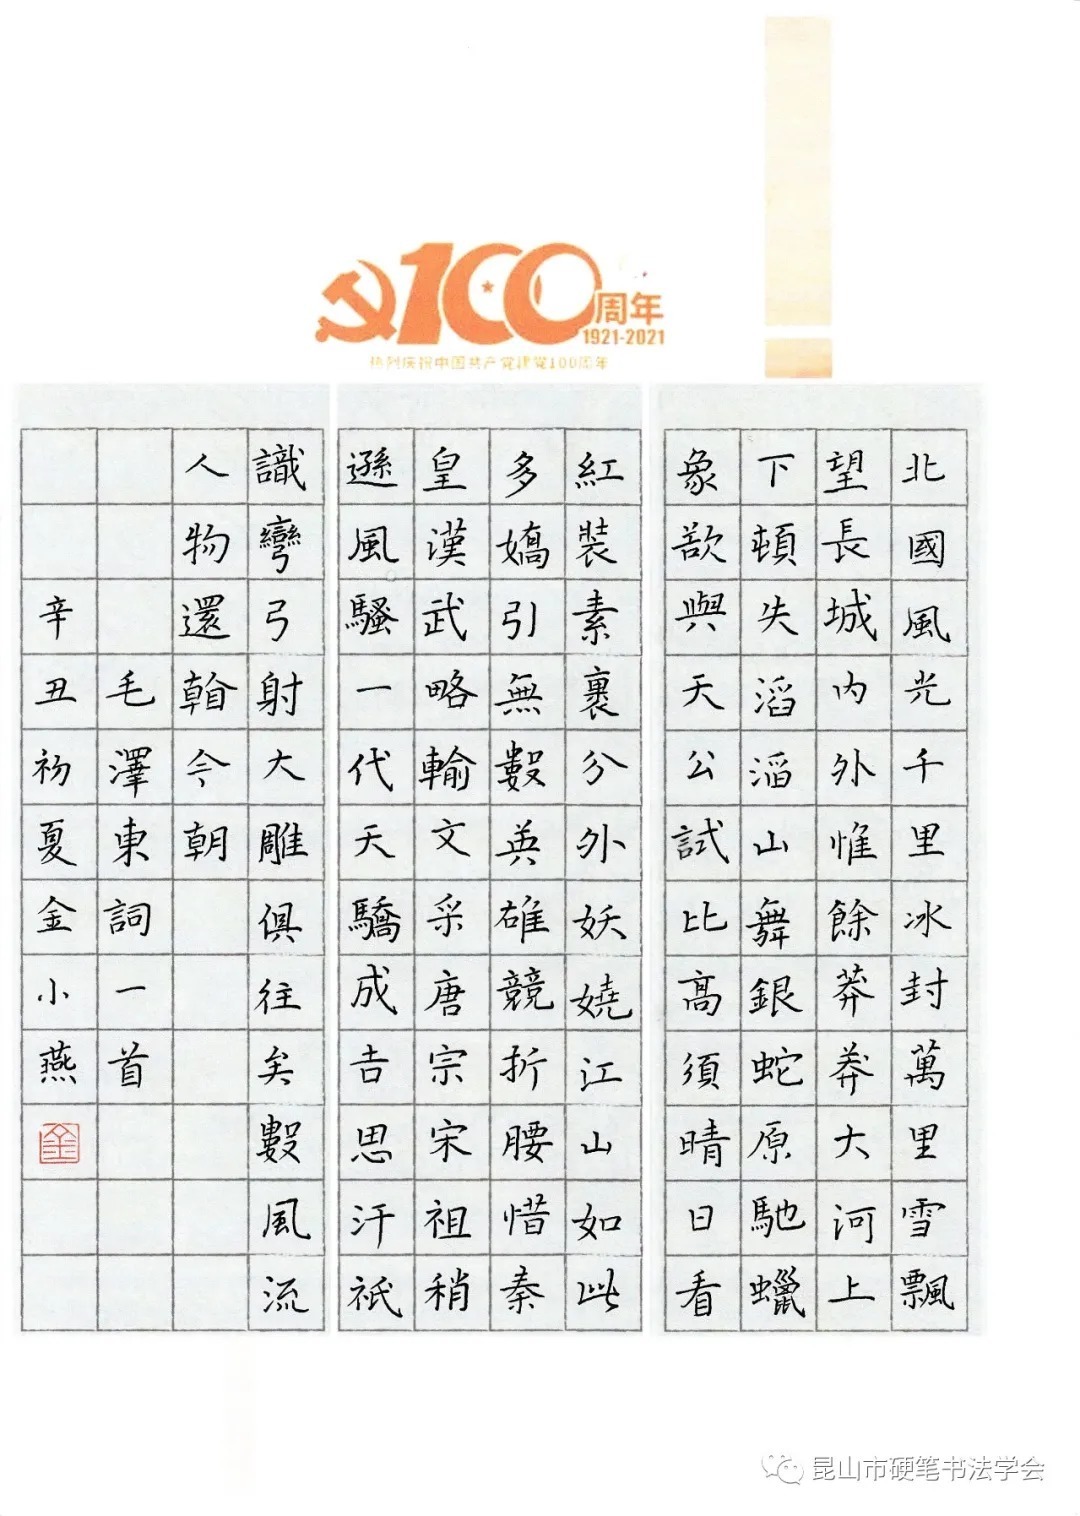 100周年
1921-2021
热烈庆祝中国共产党建党100周年
北國風光千里冰封萬里雪飄
望長城內外惟餘莽莽大河上
下頓失滔滔山舞銀蛇原馳蠟
象欲與天公試比高須晴日看
紅裝素裹分外妖嬈江山如此
多嬌引無數英雄競折腰惜秦
皇漢武略輸文采唐宗宋祖稍
遜風騷一代天驕成吉思汗祇
識彎弓射大雕俱往矣數風流
人物還看今朝
毛澤東詞一首
辛丑初夏金小燕
金
昆山市硬笔书法学会